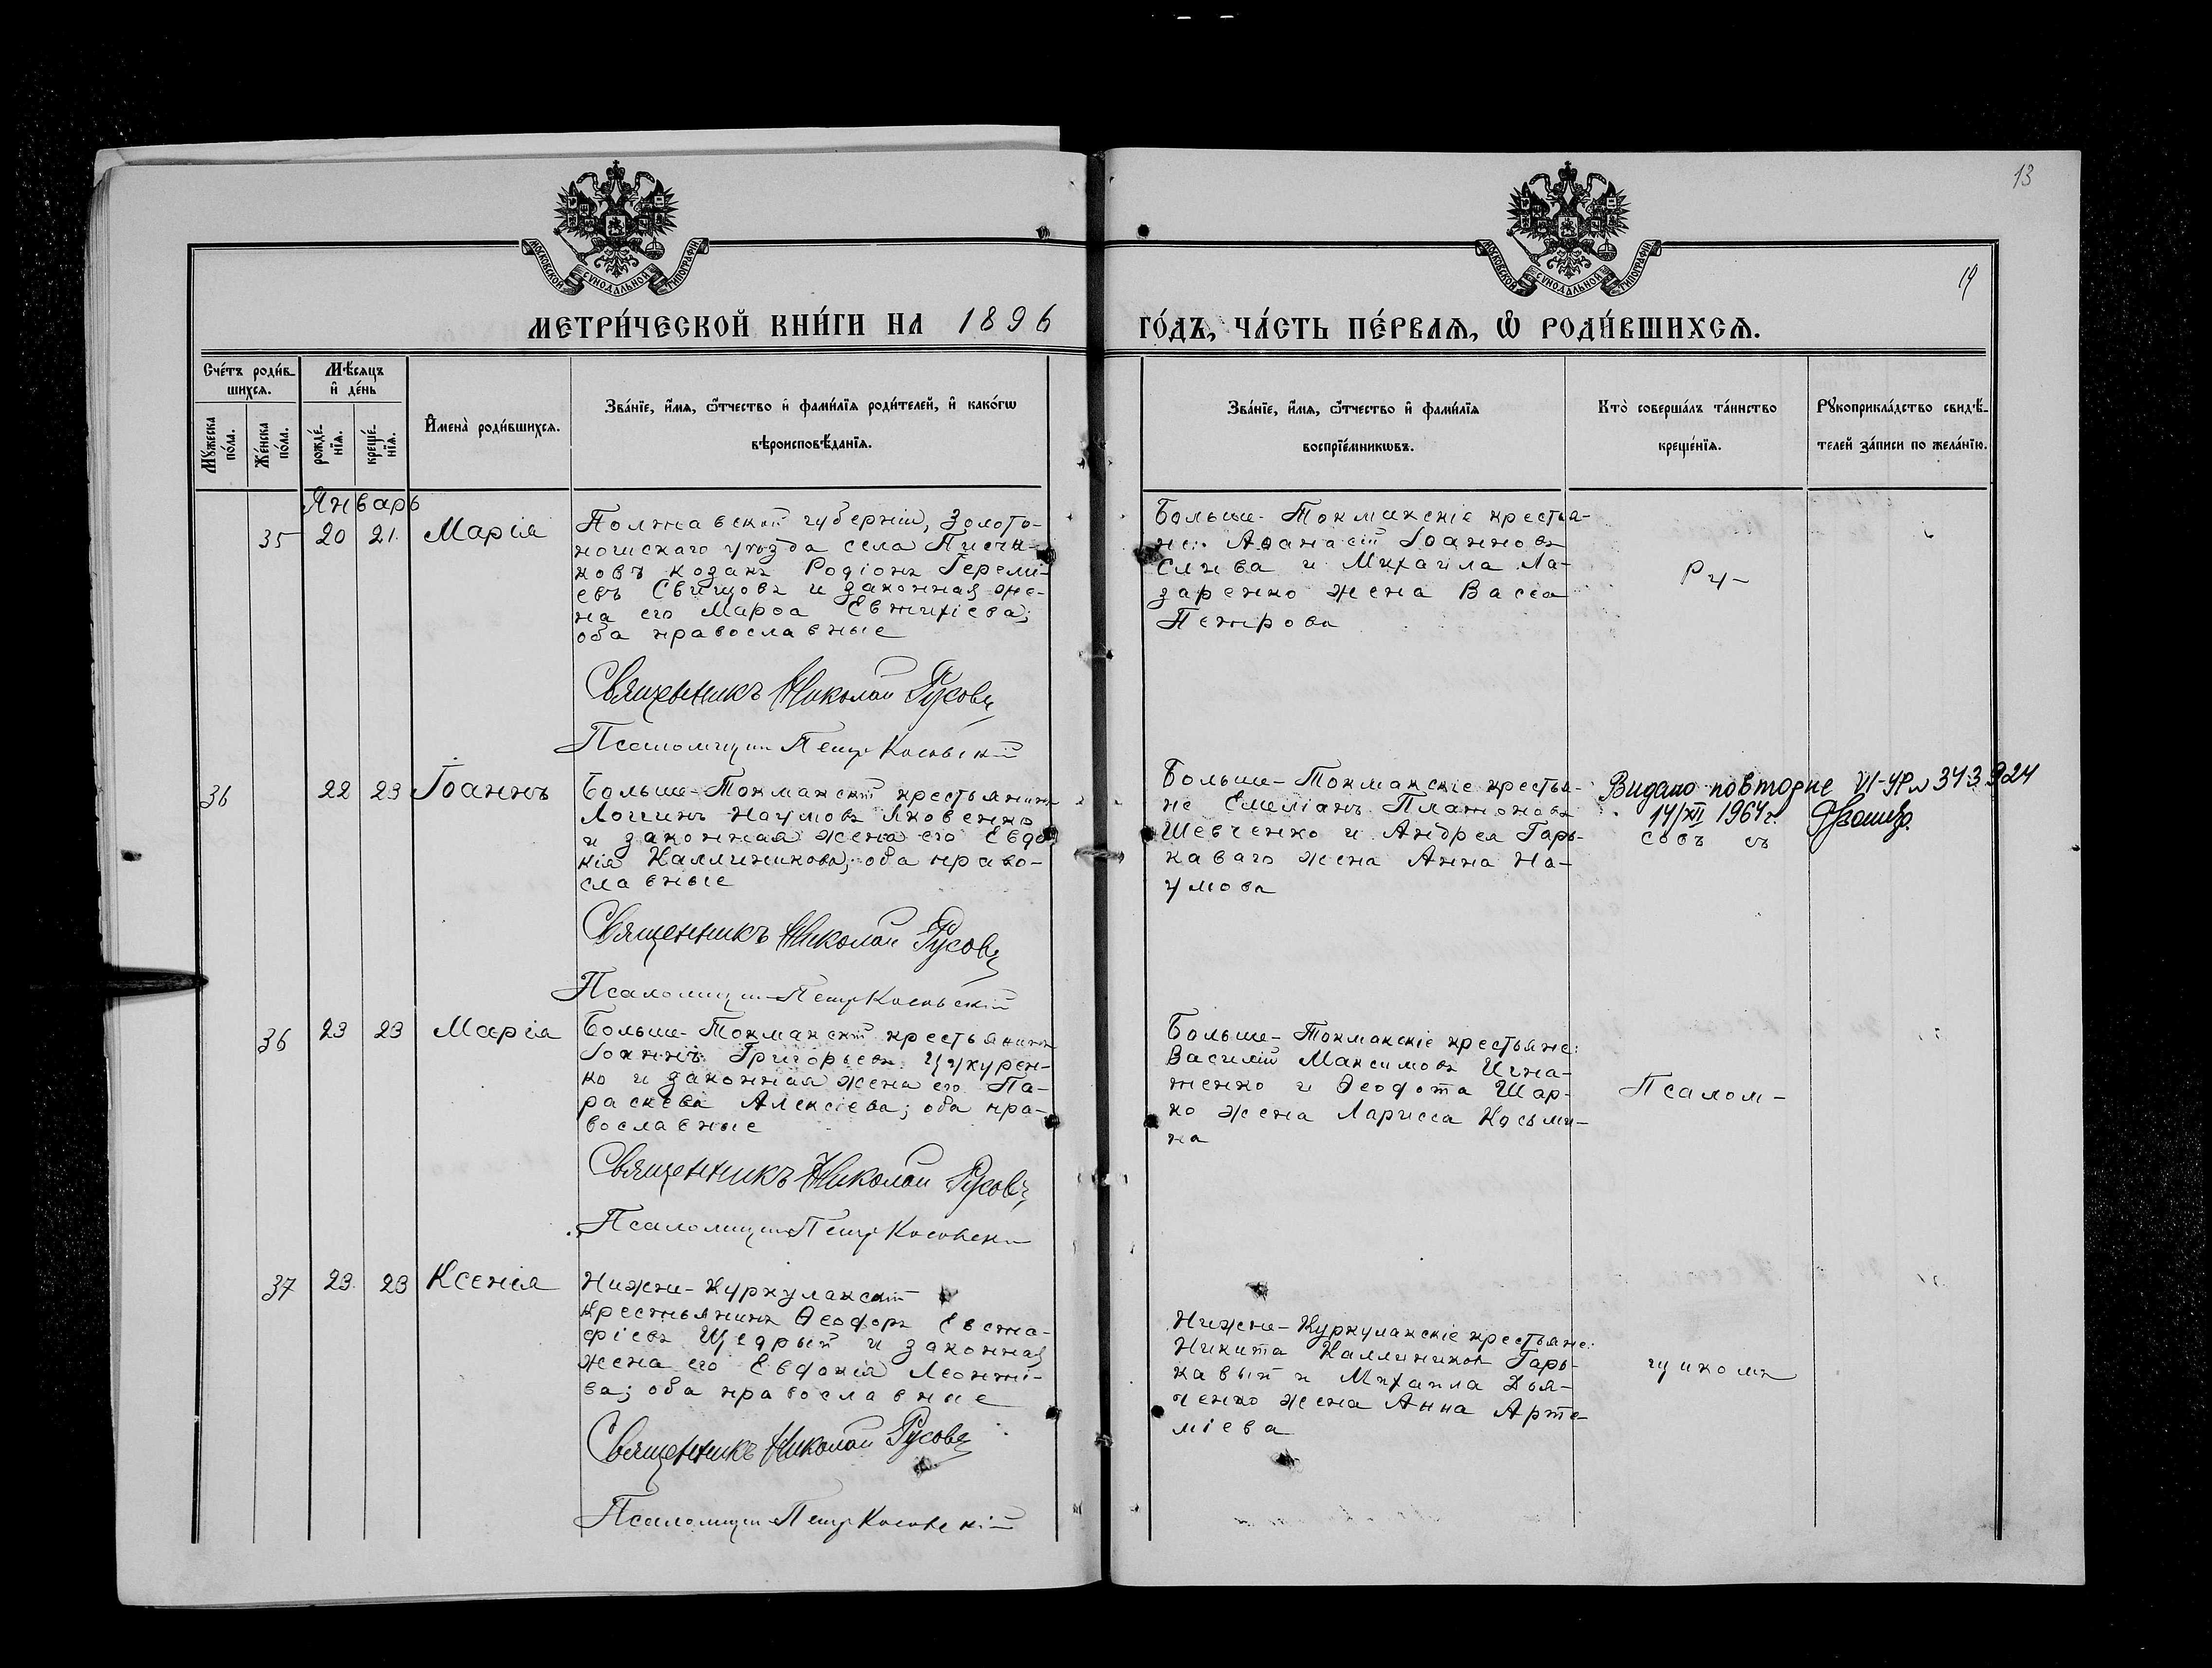 13
МОСКОВСКОЙ СѴНОДАЛЬНОЙ ТИПОГРАФІИ
МОСКОВСКОЙ СѴНОДАЛЬНОЙ ТИПОГРАФІИ
МЕТРИ́ЧЕСКОЙ КНИ́ГИ НА 1896
ГО́ДЪ, ЧА́СТЬ ПЕ́РВАѦ, Ѡ҆ РОДИ́ВШИХСѦ.
Сче́тъ роди́в-
шихсѧ.
Мѣ́сѧцъ
и҆ де́нь
Мꙋ́жеска
по́ла.
Же́нска
по́ла.
рожде́-
нїѧ.
креще́-
нїѧ.
И҆мена̀ роди́вшихсѧ.
Зва́нїе, и҆́мѧ, ѻ҆́тчество и҆ фами́лїѧ роди́телей, и҆ како́гѡ
вѣроисповѣ́данїѧ.
Зва́нїе, и҆́мѧ, ѻ҆́тчество и҆ фами́лїѧ
воспрїе́мникѡвъ.
Кто̀ соверша́лъ та́инство
креще́нїѧ.
Рꙋкоприкла́дство свидѣ́-
телей за́писи по жела́нїю.
Январь
35 20 21. Марія
Полтавской губерніи, Золото-
ношскаго уѣзда села Песчи-
ковъ козакъ Родіонъ Іеремі-
евъ Свищовъ и законная же-
на его Марѳа Евтихіева;
оба православные
Священникъ Николай Русовъ
Псаломщикъ Петръ Косовскій
Больше-Токмакскіе крестья-
не: Аѳанасій Іоанновъ
Слива и Михаила Ла-
заренко жена Васса
Петрова
Ру-
36 22 23 Іоаннъ
Больше-Токмакскій крестьянинъ
Логинъ Наумовъ Яковенко
и законная жена его Евдо-
кія Каллиникова; оба право-
славные
Священникъ Николай Русовъ
Псаломщикъ Петръ Косовскій
Больше-Токмакскіе крестья-
не Емеліанъ Платоновъ
Шевченко и Андрея Гарь-
каваго жена Анна На-
умова
Видано повторне VI-УР № 343924
14/XII 1964 г.
совъ съ
36 23 23 Марія
Больше-Токмакскій крестьянинъ
Іоаннъ Григорьевъ Цукурен-
ко и законная жена его Па-
раскева Алексіева; оба пра-
вославные
Священникъ Николай Русовъ
Псаломщикъ Петръ Косовскій
Больше-Токмакскіе крестьяне:
Василій Максимовъ Игна-
тенко и Ѳеодота Шар-
ко жена Ларисса Косьми-
на
Псалом-
37 23 23 Ксенія
Нижне-Куркулакскій
крестьянинъ Ѳеодоръ Евста-
фіевъ Щедрый и законная
жена его Евдокія Леонті-
ва; оба православные
Священникъ Николай Русовъ
Псаломщикъ Петръ Косовскій
Нижне-Куркулакскіе крестьяне:
Никита Каллиниковъ Гарь-
кавый и Михаила Дья-
ченко жена Анна Арте-
міева
щикомъ